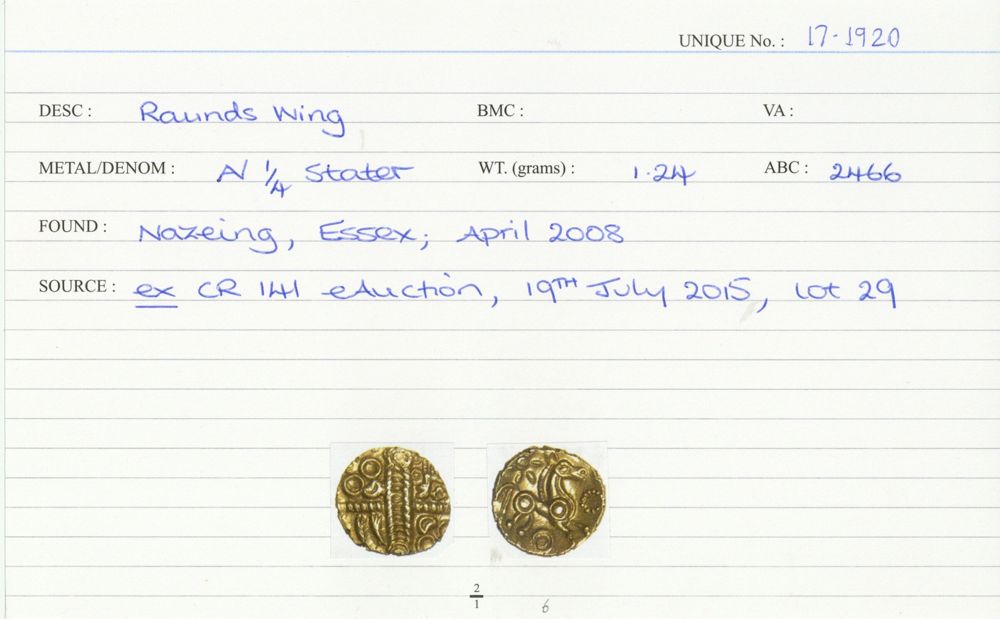 UNIQUE No. : 17-1920
DESC : Raunds Wing BMC : VA :
METAL/DENOM : AV 1/4 Stater WT. (grams) : 1.24 ABC : 2466
FOUND : Nazeing, Essex; April 2008
SOURCE : ex CR 141 eAuction, 19TH July 2015, lot 29
2
1
6